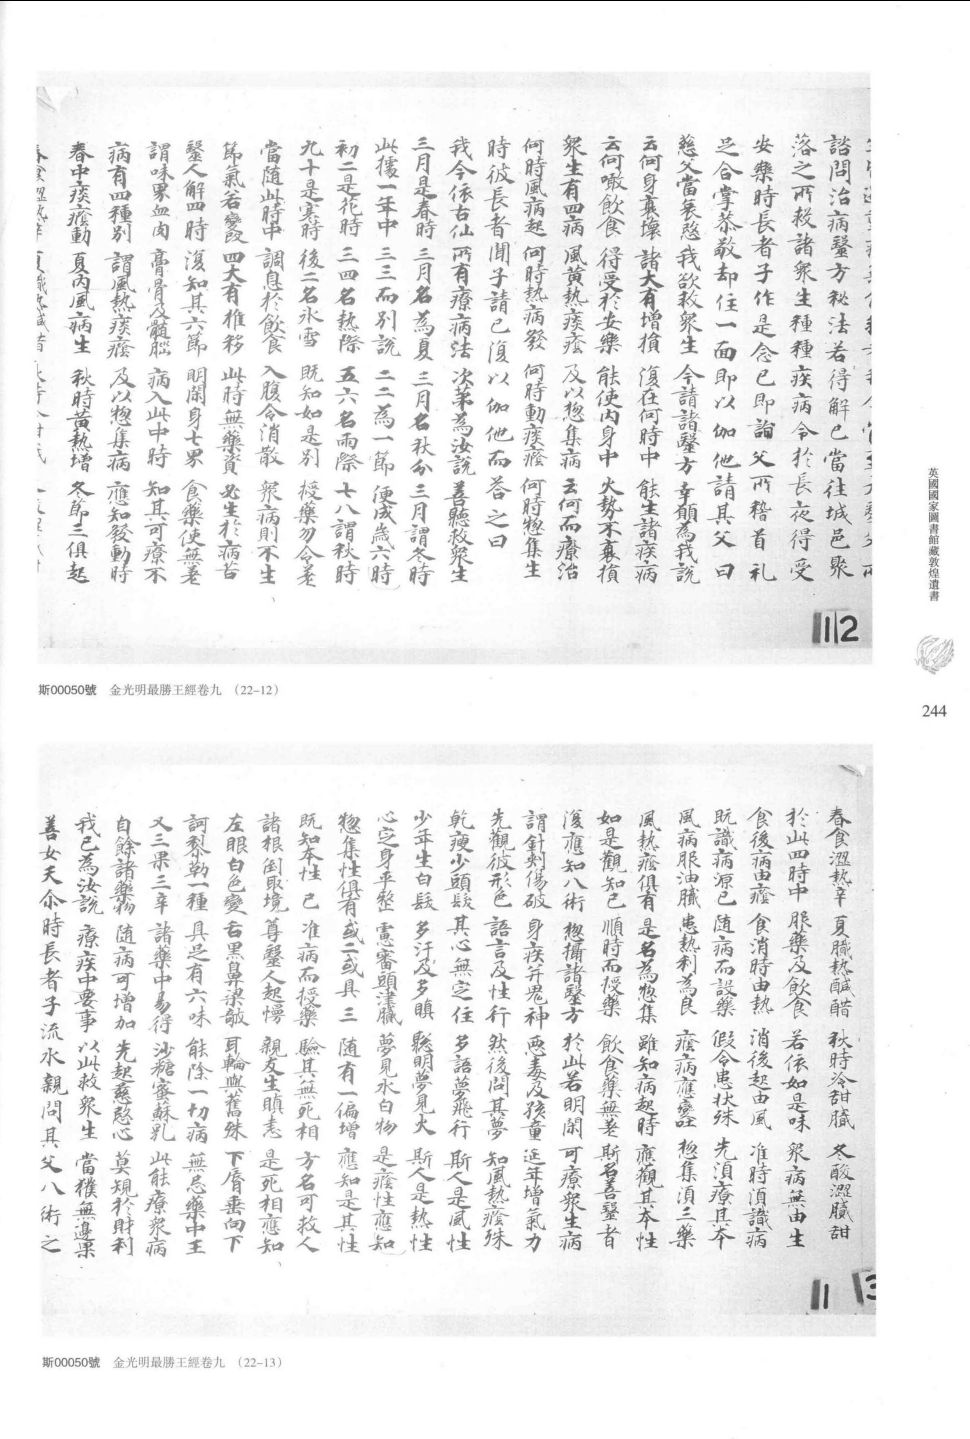 諮問治病醫方秘法若得解已當往城邑聚
落之所救諸衆生種種疾病令於長夜得受
安樂時長者子作是念已即詣父所稽首礼
足合掌恭敬却住一面即以伽他請其父曰
慈父當哀愍 我欲救衆生 今請諸醫方 幸願為我說
云何身衰壞 諸大有增損 復在何時中 能生諸疾病
云何噉飲食 得受於安樂 能使內身中 火勢不衰損
衆生有四病 風黃熱痰癊 及以惣集病 云何而療治
何時風病起 何時熱病發 何時動痰癊 何時惣集生
時彼長者聞子請已復以伽他而荅之曰
我今依古仙 所有療病法 次第為汝說 善聽救衆生
三月是春時 三月名為夏 三月名秋分 三月謂冬時
此據一年中 三三而別說 二二為一節 便成歲六時
初二是花時 三四名熱際 五六名雨際 七八謂秋時
九十是寒時 後二名氷雪 既知如是別 授藥勿令差
當随此時中 調息於飲食 入腹令消散 衆病則不生
節氣若變改 四大有推移 此時無藥資 必生於病苦
醫人解四時 復知其六節 明閑身七界 食藥使無差
謂味界血肉 膏骨及髓腦 病入此中時 知其可療不
病有四種別 謂風熱痰癊 及以惣集病 應知發動時
春中痰癊動 夏內風病生 秋時黃熱增 冬節三俱起
斯00050號 金光明最勝王經卷九 (22-12)
春食澀熱辛 夏膩熱醎醋 秋時冷甜膩 冬酸澀膩甜
於此四時中 服藥及飲食 若依如是味 衆病無由生
食後病由癊 食消時由熱 消後起由風 准時湏識病
既識病源已 随病而設藥 假令患状殊 先湏療其本
風病服油膩 患熱利為良 癊病應變吐 惣集湏三藥
風熱癊俱有 是名為惣集 雖知病起時 應觀其本性
如是觀知已 順時而授藥 飲食藥無差 斯名善醫者
復應知八術 惣攝諸醫方 於此若明閑 可療衆生病
謂針刺傷破 身疾并鬼神 惡毒及孩童 延年增氣力
先觀彼形色 語言及性行 然後問其夢 知風熱癊殊
乾瘦少頭髮 其心無定住 多語夢飛行 斯人是風性
少年生白髮 多汗及多瞋 聡明夢見火 斯人是熱性
心定身平整 慮審頭津膩 夢見水白物 是癊性應知
惣集性俱有 或二或具三 随有一偏增 應知是其性
既知本性已 准病而授藥 驗其無死相 方名可救人
諸根倒取境 尊醫人起慢 親友生瞋恚 是死相應知
左眼白色變 舌黑鼻梁敧 耳輪與舊殊 下脣垂向下
訶棃勒一種 具足有六味 能除一切病 無忌藥中王
又三果三辛 諸藥中易得 沙糖蜜蘇乳 此能療衆病
自餘諸藥物 随病可增加 先起慈愍心 莫規於財利
我已為汝說 療疾中要事 以此救衆生 當獲無邊果
善女天尒時長者子流水親問其父八術之
斯00050號 金光明最勝王經卷九 (22-13)
英國國家圖書館藏敦煌遺書
244